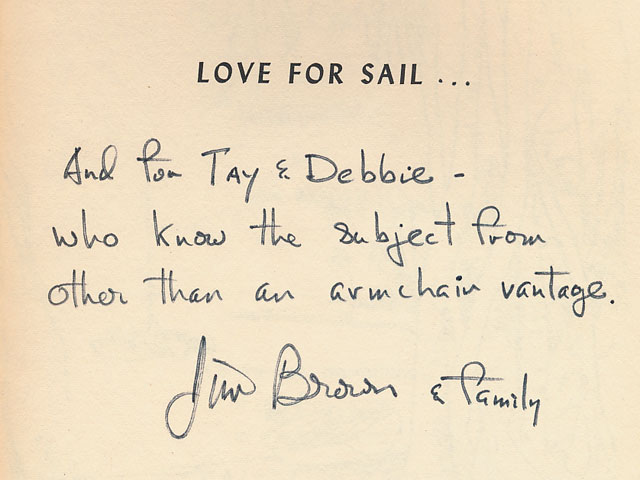 LOVE FOR SAIL ...
And for TAY & Debbie -
who know the subject from
other than an armchair vantage.
Jim Brown & family